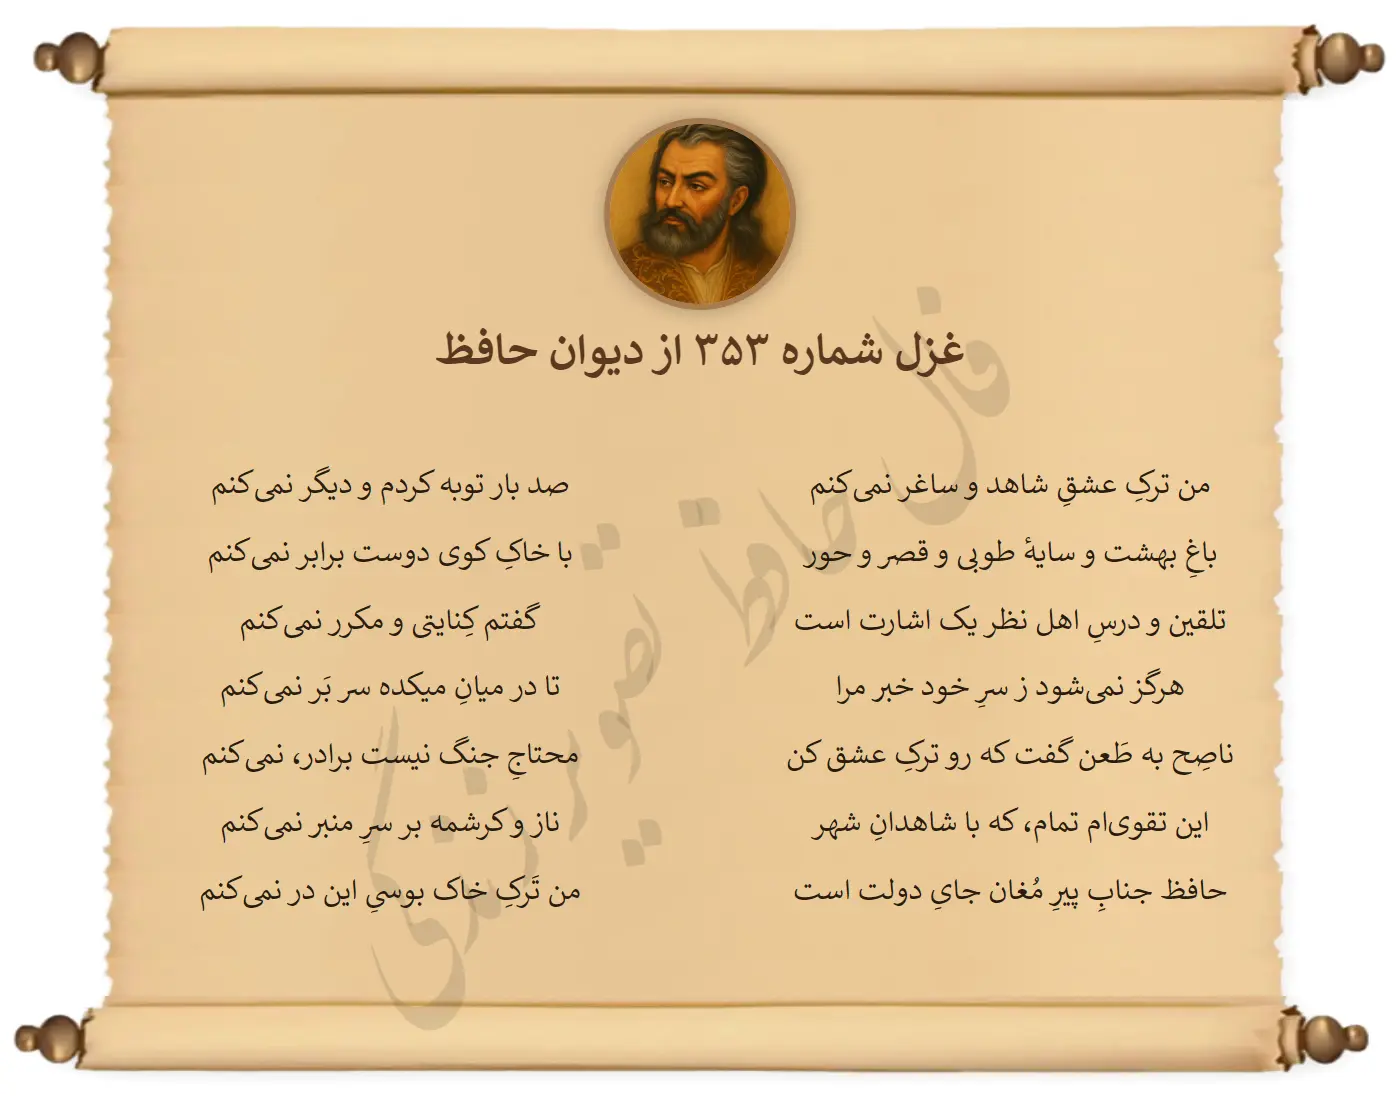 غزل شماره ۳۵۳ از دیوان حافظ
من ترکِ عشقِ شاهد و ساغر نمی‌کنم
صد بار توبه کردم و دیگر نمی‌کنم
باغِ بهشت و سایهٔ طوبی و قصر و حور
با خاکِ کوی دوست برابر نمی‌کنم
تلقین و درسِ اهل نظر یک اشارت است
گفتم کِنایتی و مکرر نمی‌کنم
هرگز نمی‌شود ز سرِ خود خبر مرا
تا در میانِ میکده سر بَر نمی‌کنم
ناصِح به طَعن گفت که رو ترکِ عشق کن
محتاجِ جنگ نیست برادر، نمی‌کنم
این تقوی‌ام تمام، که با شاهدانِ شهر
ناز و کرشمه بر سرِ منبر نمی‌کنم
حافظ جنابِ پیرِ مُغان جایِ دولت است
من تَرکِ خاک بوسیِ این در نمی‌کنم
فال حافظ
تصویر زندگی